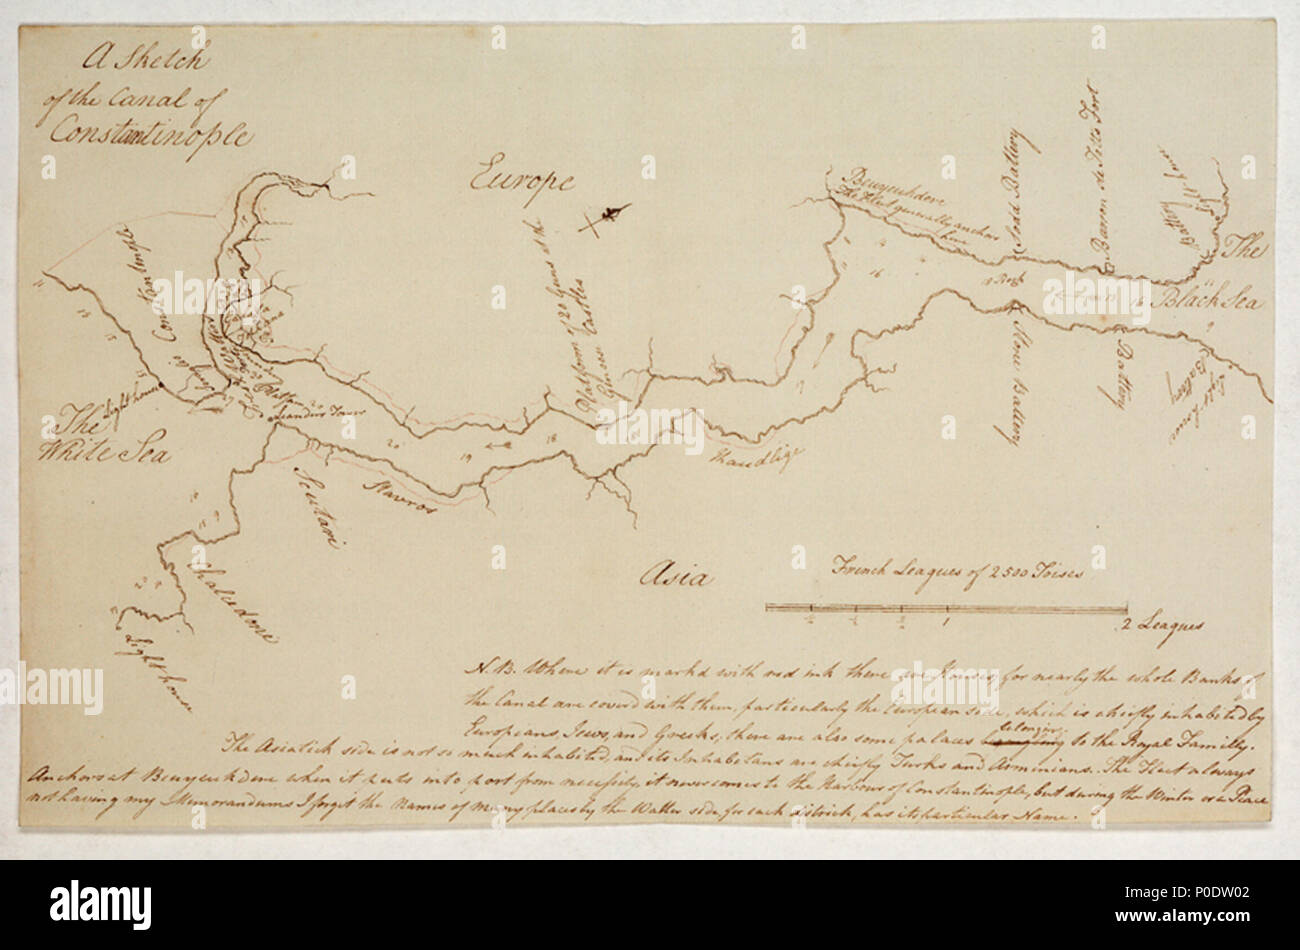 A Sketch
of the Canal of
Constantinople
Europe
Constantinople
Light house
The
White Sea
Leanders Tower
Scutari
Staveros
Chalcedone
Light house
Platform of 20 Guns
Castles
Kandligi
Beuyeukdere
The Fleet generally anchors
here
Scdd Battery
Baron de Totts Fort
Battery
Light House
The
Black Sea
Battery
Battery
Light house
Asia
French Leagues of 2500 Toises
1
2 Leagues
N.B. Where it is markd with red ink there are Houses, for nearly the whole Banks of
the Canal are coverd with them, particularly the European side, which is chiefly inhabited by
Europeans, Jews, and Greeks, there are also some palaces belonging to the Royal Familly.
The Asiatick side is not so much inhabited, and its Inhabetans are chiefly Turks and Arminians. The Fleet always
Anchors at Beuyeukdere when it puts into port from necessity, it never comes to the Harbour of Constantinople, but during the Winter or a Peace
not having my Memorandums I forget the names of many places by the Watter side, for each districk, has its particular Name.
alamy
Image ID: P0DW02
www.alamy.com